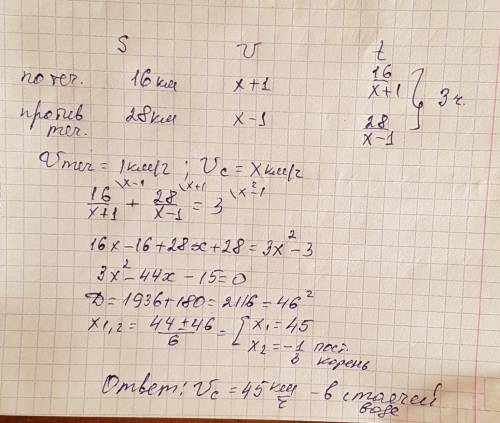 S V t
по теч. 16км x+1 16/(x+1)
против теч. 28км x-1 28/(x-1) } 3ч.
Vтеч = 1км/г ; Vс = x км/г
16/(x+1) \x-1 + 28/(x-1) \x+1 = 3 \x²-1
16x-16+28x+28=3x²-3
3x²-44x-15=0
D=1936+180=2116=46²
x1,2 = (44±46)/6 = [ x1=45
x2=-1/3 пост. корень
Ответ: Vс = 45 км/ч - в стоячей воде